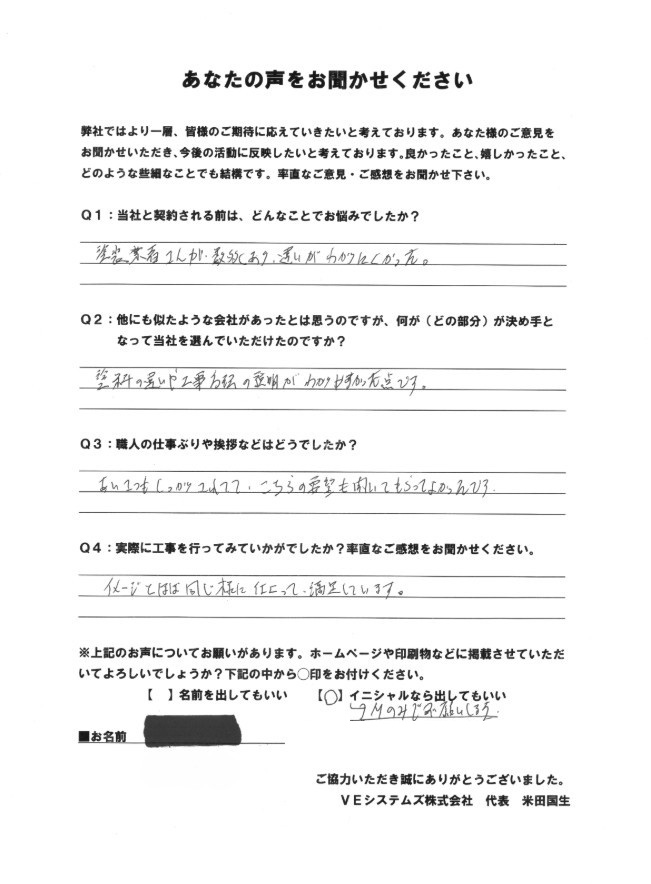 あなたの声をお聞かせください
弊社ではより一層、皆様のご期待に応えていきたいと考えております。あなた様のご意見を
お聞かせいただき、今後の活動に反映したいと考えております。良かったこと、嬉しかったこと、
どのような些細なことでも結構です。率直なご意見・ご感想をお聞かせ下さい。
Q1：当社と契約される前は、どんなことでお悩みでしたか？
塗装業者さんが、数多くあり、違いがわかりにくかった。
Q2：他にも似たような会社があったとは思うのですが、何が（どの部分）が決め手と
なって当社を選んでいただけたのですか？
塗料の違いや工事方法の説明がわかりやすかった点です。
Q3：職人の仕事ぶりや挨拶などはどうでしたか？
あいさつもしっかりされてて、こちらの要望も聞いてもらってよかったです。
Q4：実際に工事を行ってみていかがでしたか？率直なご感想をお聞かせください。
イメージとほぼ同じ様に仕上って、満足しています。
※上記のお声についてお願いがあります。ホームページや印刷物などに掲載させていただ
いてよろしいでしょうか？下記の中から○印をお付けください。
【　】名前を出してもいい　【○】イニシャルなら出してもいい
Mのみでお願いします。
■お名前
ご協力いただき誠にありがとうございました。
ＶＥシステムズ株式会社　代表　米田国生